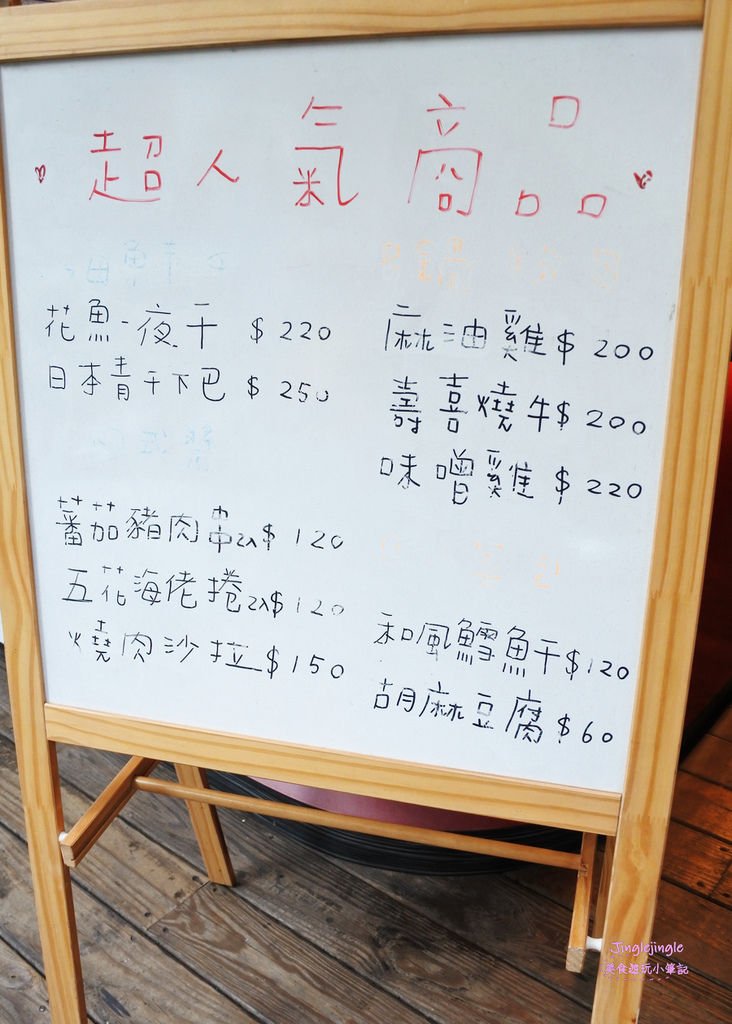 超人氣商品
花魚一夜干 $220
日本青干下巴 $250
蕃茄豬肉串2入$120
五花海佬捲2入$120
燒肉沙拉$150
麻油雞$200
壽喜燒牛$200
味噌雞$220
和風鱈魚干$120
胡麻豆腐$60
Jinglejingle
美食遊玩小筆記